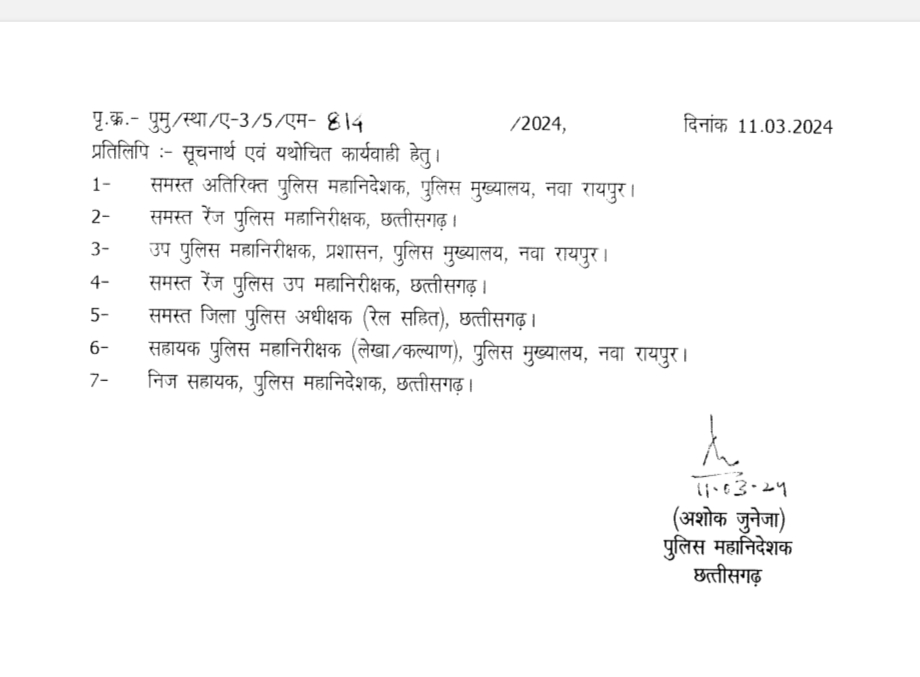 पृ.क्र.- पुमु/स्था/ए-3/5/एम- 814 /2024, दिनांक 11.03.2024
प्रतिलिपि :- सूचनार्थ एवं यथोचित कार्यवाही हेतु।
1- समस्त अतिरिक्त पुलिस महानिदेशक, पुलिस मुख्यालय, नवा रायपुर।
2- समस्त रेंज पुलिस महानिरीक्षक, छत्तीसगढ़।
3- उप पुलिस महानिरीक्षक, प्रशासन, पुलिस मुख्यालय, नवा रायपुर।
4- समस्त रेंज पुलिस उप महानिरीक्षक, छत्तीसगढ़।
5- समस्त जिला पुलिस अधीक्षक (रेल सहित), छत्तीसगढ़।
6- सहायक पुलिस महानिरीक्षक (लेखा/कल्याण), पुलिस मुख्यालय, नवा रायपुर।
7- निज सहायक, पुलिस महानिदेशक, छत्तीसगढ़।
11-03-24
(अशोक जुनेजा)
पुलिस महानिदेशक
छत्तीसगढ़